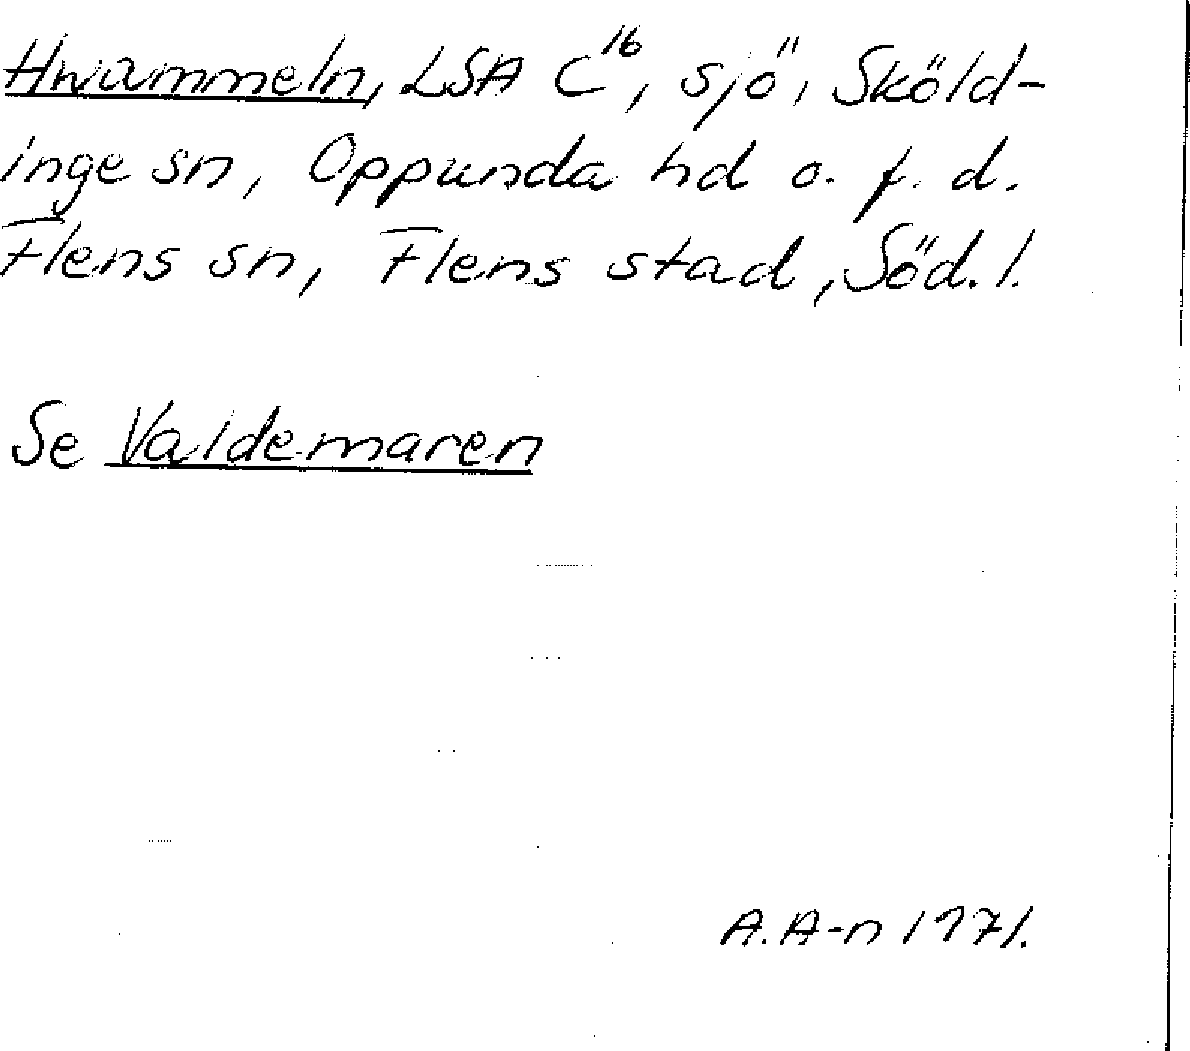 Hwammeln, LSA C16, sjö, Sköld-
inge sn, Oppunda hd o. f. d.
Flens sn, Flens stad, Söd. l.
Se Valdemaren
A. A-n 1971.